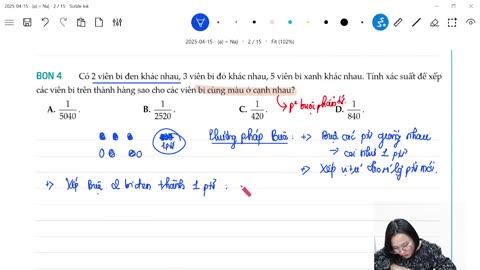 2025-04-15 · (a) = Na) · 2 / 15 · Suttle Ink
2025-04-15 · (a) = Na) · 2 / 15 · Fit (102%)
BON 4 Có 2 viên bi đen khác nhau, 3 viên bi đỏ khác nhau, 5 viên bi xanh khác nhau. Tính xác suất để xếp
các viên bi trên thành hàng sao cho các viên bi cùng màu ở cạnh nhau?
A. 1/5040. B. 1/2520. C. 1/420. D. 1/840.
p² buộc phần tử.
1 ptử
Phương pháp Buộc: +) Buộc các ptử giống nhau
→ coi như 1 ptử
+) Xếp vị trí cho
+) Xếp Buộc 2 bi đen thành 1 ptử :